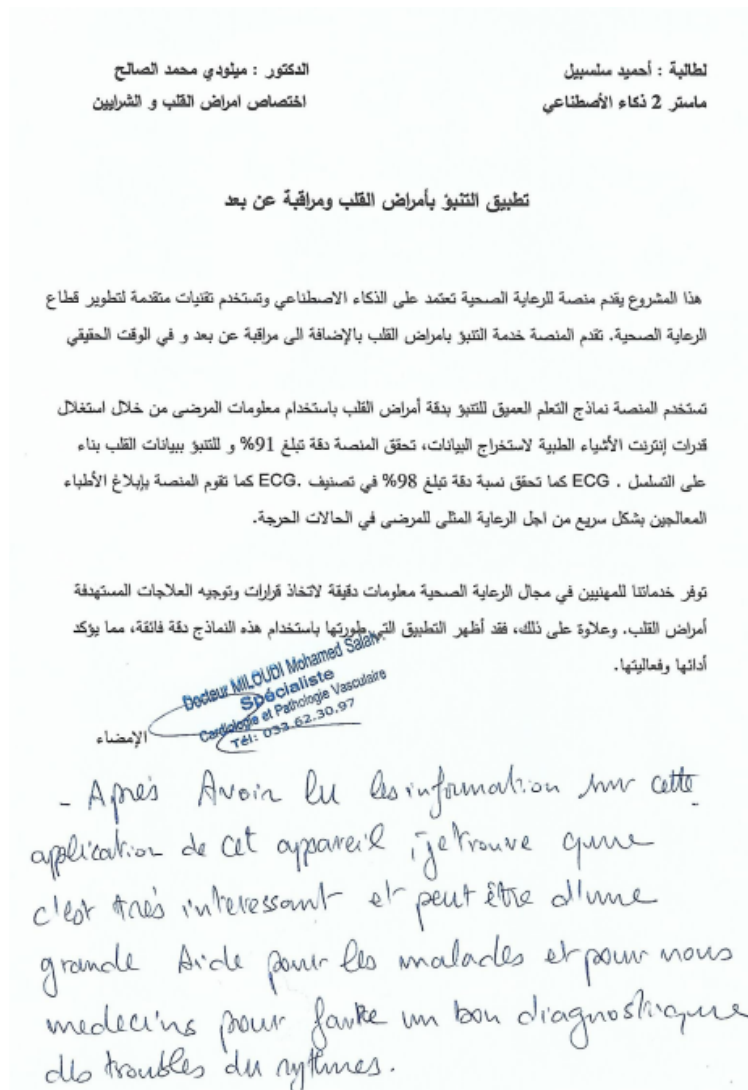 لطالبة : أحميد سلسبيل
الدكتور : ميلودي محمد الصالح
ماستر 2 ذكاء الأصطناعي
اختصاص امراض القلب و الشرايين
تطبيق التنبؤ بأمراض القلب ومراقبة عن بعد
هذا المشروع يقدم منصة للرعاية الصحية تعتمد على الذكاء الاصطناعي وتستخدم تقنيات متقدمة لتطوير قطاع
الرعاية الصحية. تقدم المنصة خدمة التنبؤ بامراض القلب بالإضافة الى مراقبة عن بعد و في الوقت الحقيقي
تستخدم المنصة نماذج التعلم العميق للتنبؤ بدقة أمراض القلب باستخدام معلومات المرضى من خلال استغلال
قدرات إنترنت الأشياء الطبية لاستخراج البيانات، تحقق المنصة دقة تبلغ 91% و للتنبؤ ببيانات القلب بناء
على التسلسل . ECG كما تحقق نسبة دقة تبلغ 98% في تصنيف .ECG كما تقوم المنصة بإبلاغ الأطباء
المعالجين بشكل سريع من اجل الرعاية المثلى للمرضى في الحالات الحرجة.
توفر خدماتنا للمهنيين في مجال الرعاية الصحية معلومات دقيقة لاتخاذ قرارات وتوجيه العلاجات المستهدفة
أمراض القلب. وعلاوة على ذلك، فقد أظهر التطبيق التي طورتها باستخدام هذه النماذج دقة فائقة، مما يؤكد
أدائها وفعاليتها.
Docteur MILOUDI Mohamed Salah
Spécialiste
Cardiologie et Pathologie Vasculaire
Tél: 033.62.30.97
الإمضاء
- Aprés Avoir lu les information sur cette
application de cet appareil, je trouve que
c'est trés interessant et peut être d'une
grande Aide pour les malades et pour nous
medecins pour faire un bon diagnostique
des troubles du rythmes.